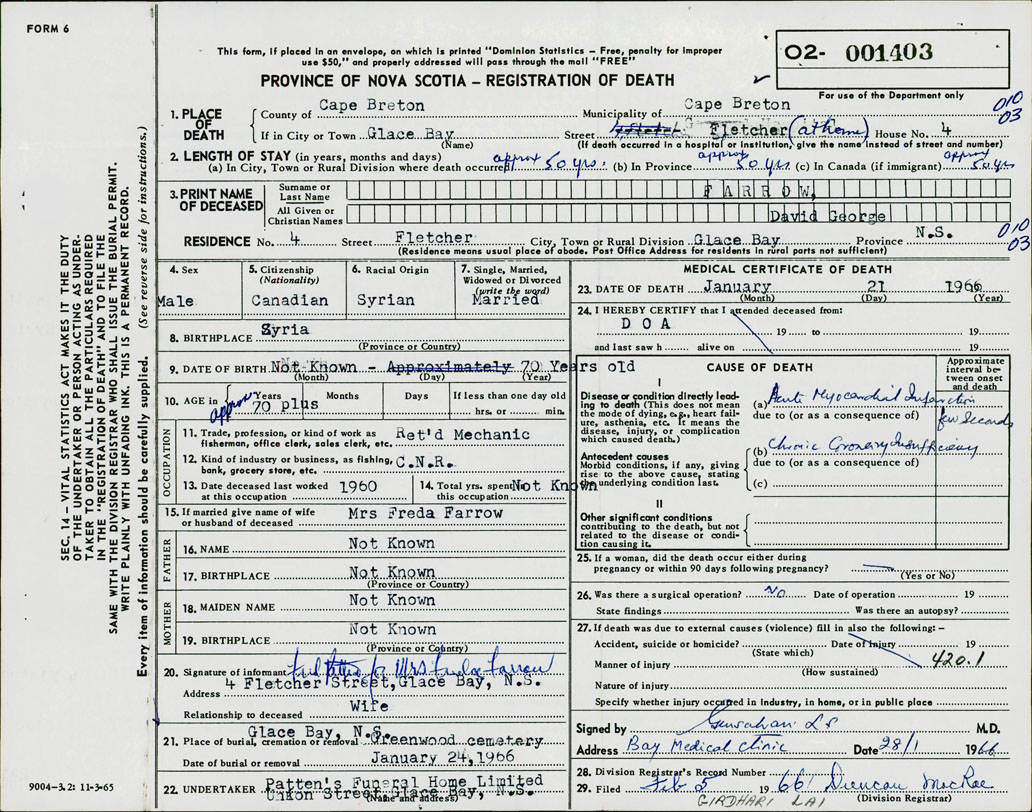 FORM 6
This form, if placed in an envelope, on which is printed "Dominion Statistics – Free, penalty for improper
use $50," and properly addressed will pass through the mail "FREE"
PROVINCE OF NOVA SCOTIA – REGISTRATION OF DEATH
02- 001403
For use of the Department only
010
03
1. PLACE OF DEATH
County of Cape Breton Municipality of Cape Breton
If in City or Town Glace Bay Street Fletcher (at home) House No. 4
(Name) (If death occurred in a hospital or institution, give the name instead of street and number)
2. LENGTH OF STAY (in years, months and days)
(a) In City, Town or Rural Division where death occurred approx 50 yrs. (b) In Province approx 50 yrs (c) In Canada (if immigrant) approx 50 yrs
3. PRINT NAME OF DECEASED
Surname or Last Name FARROW,
All Given or Christian Names David George
RESIDENCE No. 4 Street Fletcher City, Town or Rural Division Glace Bay Province N.S.
010
03
(Residence means usual place of abode. Post Office Address for residents in rural parts not sufficient)
4. Sex Male
5. Citizenship (Nationality) Canadian
6. Racial Origin Syrian
7. Single, Married, Widowed or Divorced (write the word) Married
8. BIRTHPLACE Syria
(Province or Country)
9. DATE OF BIRTH Not Known – Approximately 70 Years old
(Month) (Day) (Year)
10. AGE in approx Years 70 plus Months Days If less than one day old
hrs. or min.
OCCUPATION
11. Trade, profession, or kind of work as
fisherman, office clerk, sales clerk, etc. Ret'd Mechanic
12. Kind of industry or business, as fishing,
bank, grocery store, etc. C.N.R.
13. Date deceased last worked
at this occupation 1960
14. Total yrs. spent in
this occupation Not Known
15. If married give name of wife
or husband of deceased Mrs Freda Farrow
FATHER
16. NAME Not Known
17. BIRTHPLACE Not Known
(Province or Country)
MOTHER
18. MAIDEN NAME Not Known
19. BIRTHPLACE Not Known
(Province or Country)
20. Signature of informant for Mrs Freda Farrow
Address 4 Fletcher Street, Glace Bay, N.S.
Relationship to deceased Wife
Glace Bay, N.S.
21. Place of burial, cremation or removal Greenwood cemetery
Date of burial or removal January 24, 1966
22. UNDERTAKER Patten's Funeral Home Limited
Union Street Glace Bay, N.S.
(Name and address)
MEDICAL CERTIFICATE OF DEATH
23. DATE OF DEATH January 21 1966
(Month) (Day) (Year)
24. I HEREBY CERTIFY that I attended deceased from:
D O A 19 to 19
and last saw h alive on 19
CAUSE OF DEATH
Approximate interval between onset and death
I
Disease or condition directly leading to death (This does not mean the mode of dying, e.g., heart failure, asthenia, etc. It means the disease, injury, or complication which caused death.)
(a) Acute Myocardial Infarction
due to (or as a consequence of) few Seconds
Antecedent causes
Morbid conditions, if any, giving rise to the above cause, stating the underlying condition last.
(b) Chronic Coronary Insufficiency
due to (or as a consequence of)
(c)
II
Other significant conditions
contributing to the death, but not related to the disease or condition causing it.
25. If a woman, did the death occur either during
pregnancy or within 90 days following pregnancy?
(Yes or No)
26. Was there a surgical operation? No Date of operation 19
State findings Was there an autopsy?
27. If death was due to external causes (violence) fill in also the following:–
Accident, suicide or homicide? Date of injury 19
(State which)
Manner of injury 420.1
(How sustained)
Nature of injury
Specify whether injury occurred in industry, in home, or in public place
Signed by M.D.
Address Bay Medical Clinic Date 28/1 1966
28. Division Registrar's Record Number
29. Filed Feb 5 1966 Duncan MacRae
(Division Registrar)
GIRDHARI LAL
SEC. 14 – VITAL STATISTICS ACT MAKES IT THE DUTY
OF THE UNDERTAKER OR PERSON ACTING AS UNDER-
TAKER TO OBTAIN ALL THE PARTICULARS REQUIRED
IN THE "REGISTRATION OF DEATH" AND TO FILE THE
SAME WITH THE DIVISION REGISTRAR WHO SHALL ISSUE THE BURIAL PERMIT.
WRITE PLAINLY WITH UNFADING INK. THIS IS A PERMANENT RECORD.
Every item of information should be carefully supplied. (See reverse side for instructions.)
9004-3.21 11-3-65